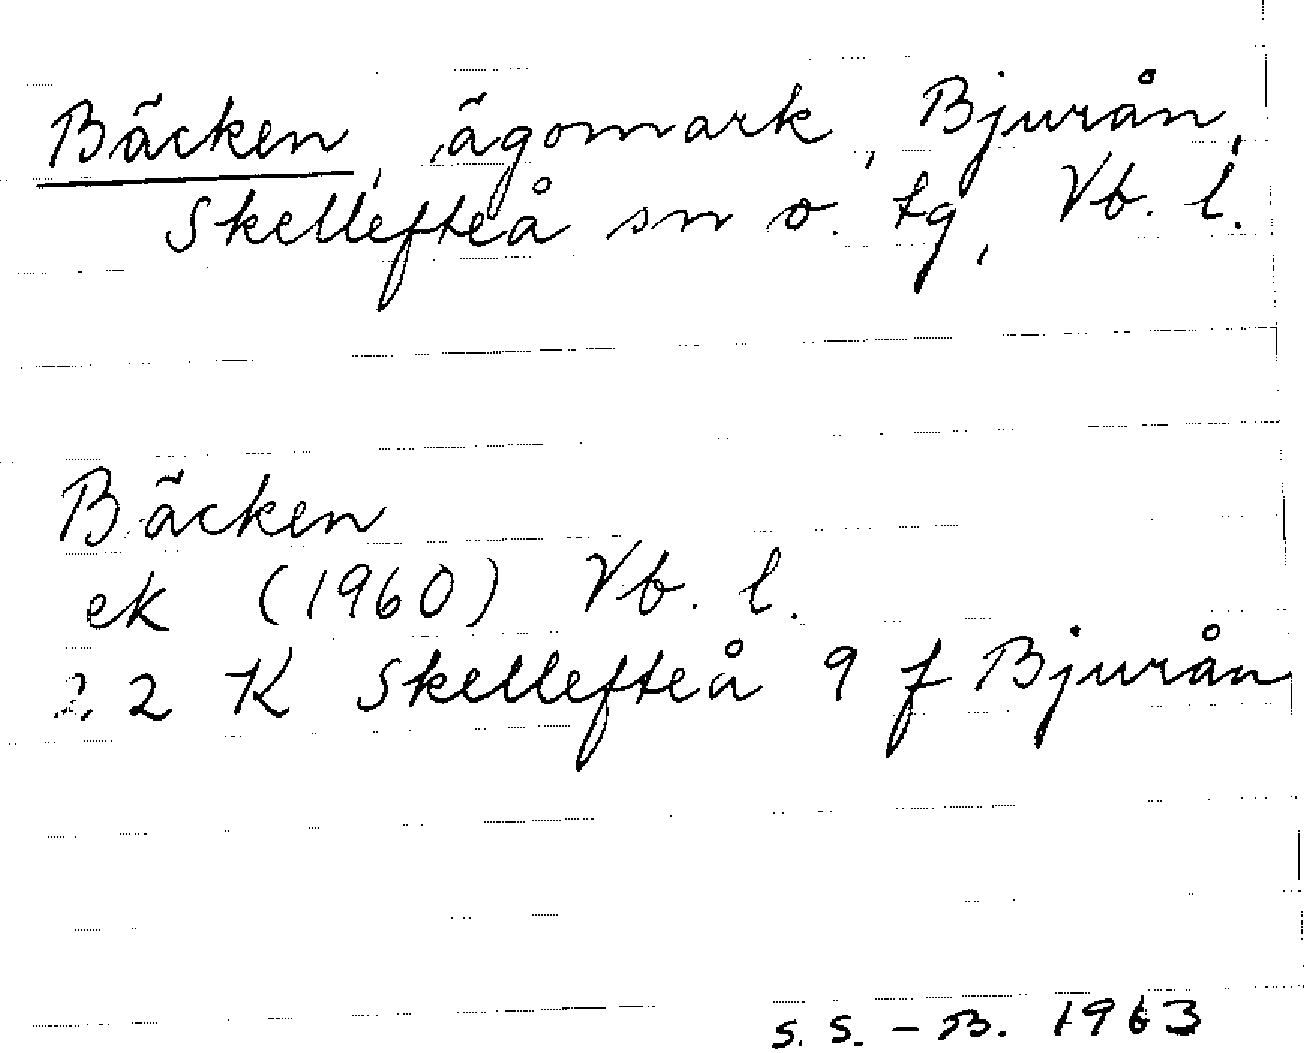 Bäcken, ägomark, Bjurån,
Skellefteå sn o. tg, Vb. l.
Bäcken
ek (1960) Vb. l.
22 K Skellefteå 9 f Bjurån
S. S. - B. 1963